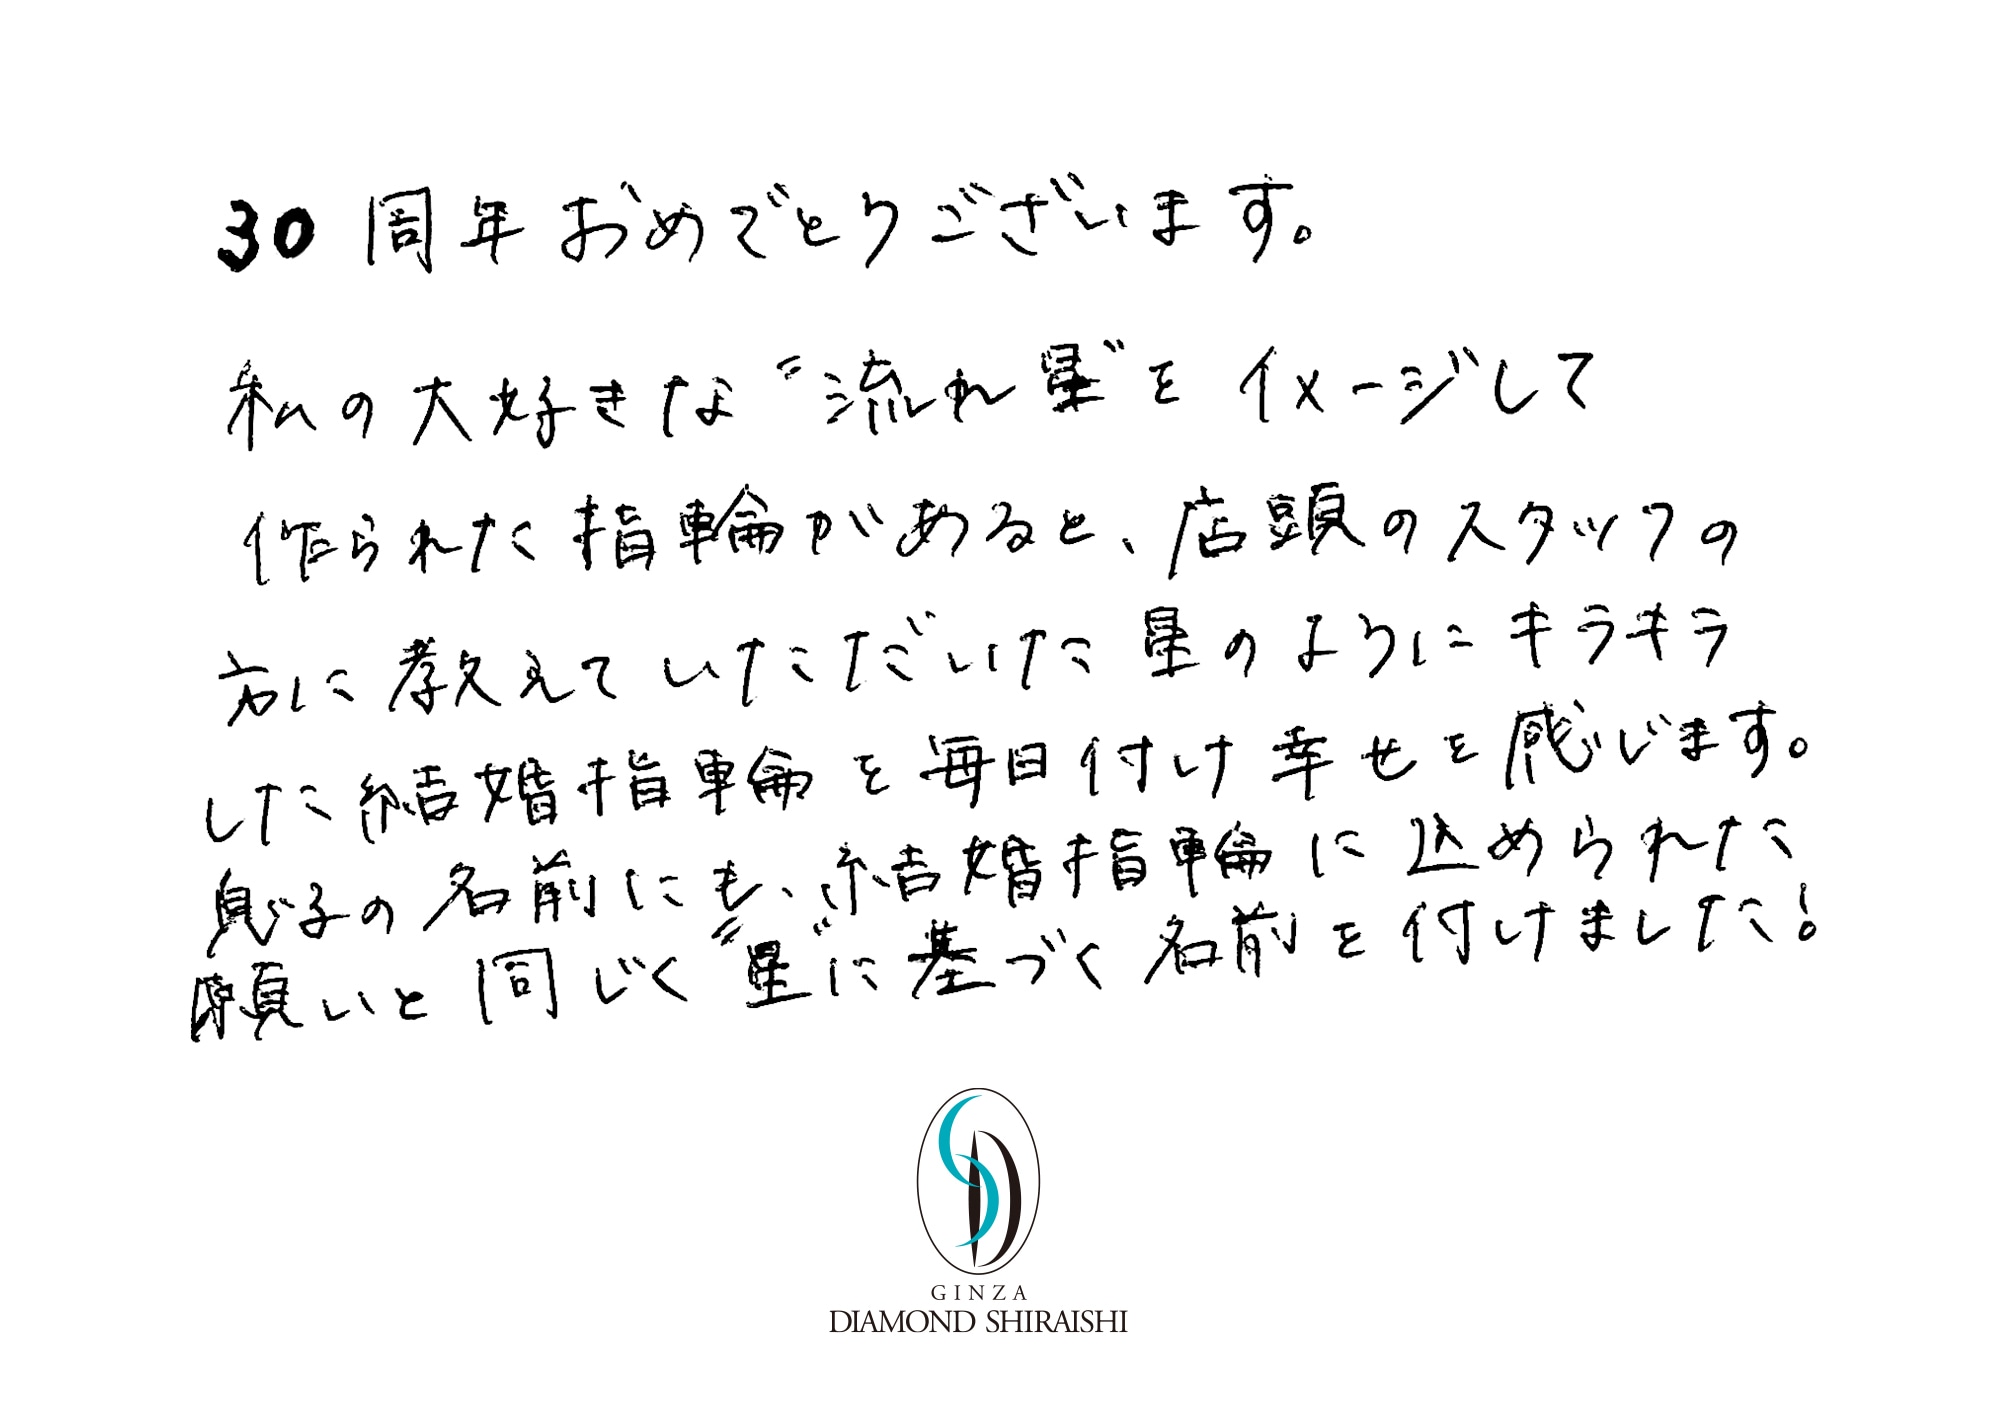 30周年おめでとうございます。
私の大好きな〝流れ星〟をイメージして
作られた指輪があると、店頭のスタッフの
方に教えていただいた星のようにキラキラ
した結婚指輪を毎日付け幸せを感じます。
息子の名前にも、結婚指輪に込められた
願いと同じく〝星〟に基づく名前を付けました!
GINZA
DIAMOND SHIRAISHI